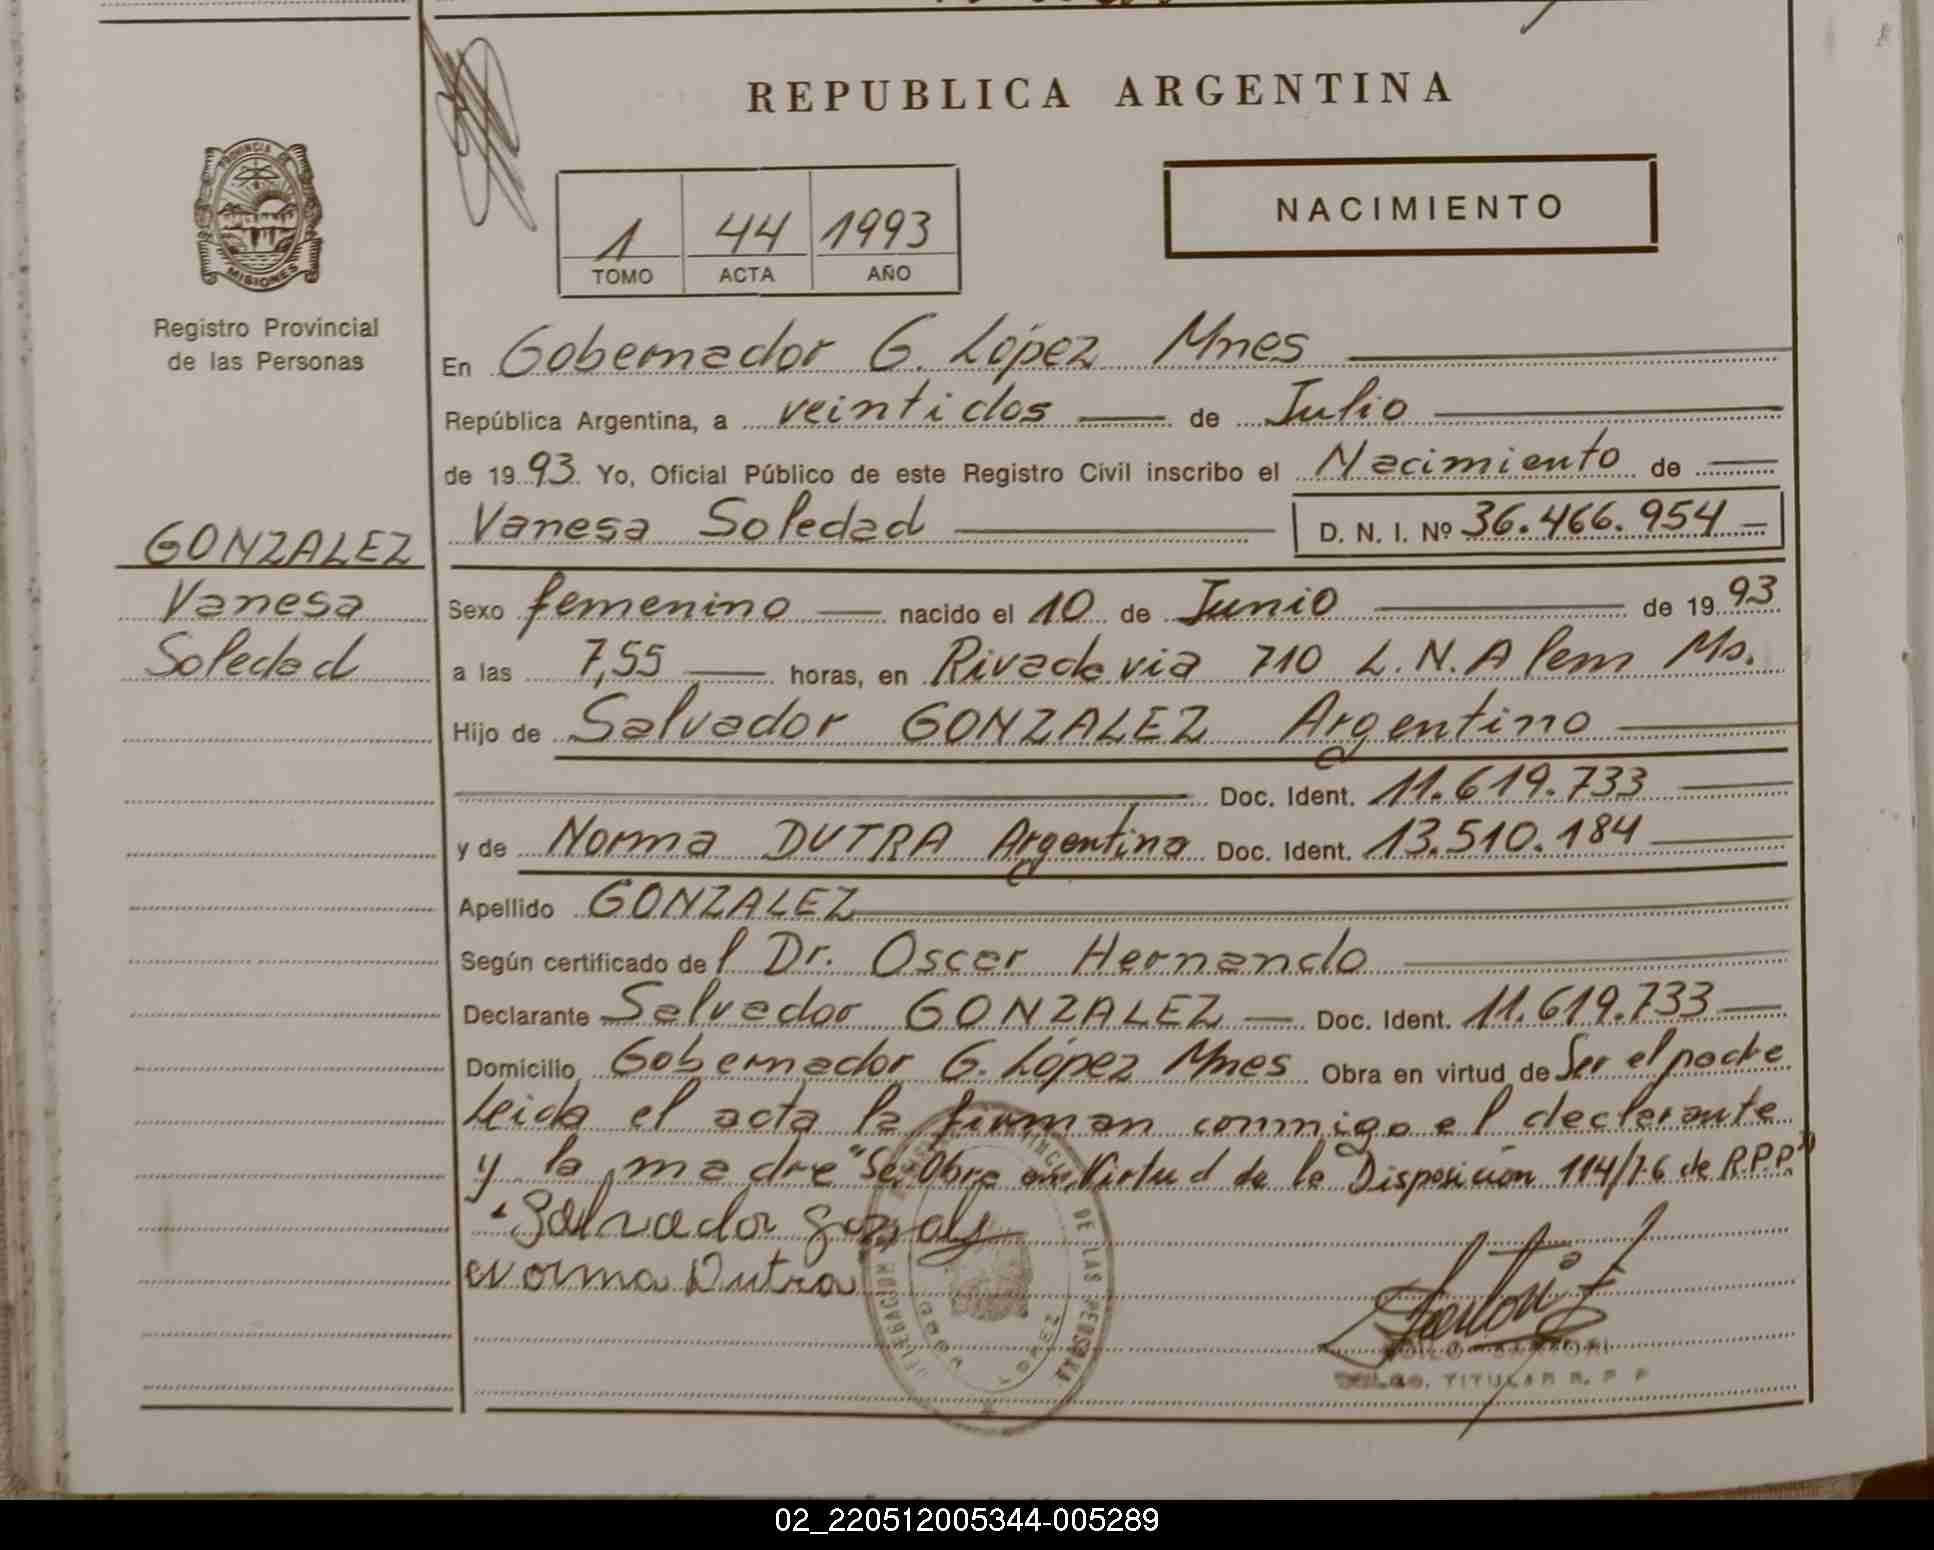 REPUBLICA ARGENTINA
PROVINCIA DE
MISIONES
Registro Provincial
de las Personas
1 44 1993
TOMO ACTA AÑO
NACIMIENTO
En Gobernador G. López Mnes
República Argentina, a veintidos de Julio
de 1993 Yo, Oficial Público de este Registro Civil inscribo el Nacimiento de
GONZALEZ
Vanesa
Soledad
Vanesa Soledad D. N. I. Nº 36.466.954
Sexo femenino nacido el 10 de Junio de 1993
a las 7,55 horas, en Rivadavia 710 L.N.Alem Ms.
Hijo de Salvador GONZALEZ Argentino
Doc. Ident. 11.619.733
y de Norma DUTRA Argentina Doc. Ident. 13.510.184
Apellido GONZALEZ
Según certificado del Dr. Oscar Hernando
Declarante Salvador GONZALEZ Doc. Ident. 11.619.733
Domicilio Gobernador G. López Mnes Obra en virtud de Ser el padre
Leida el acta la firman conmigo el declarante
y la madre "Se Obra en Virtud de la Disposición 114/76 de R.P.P."
Salvador
Norma Dutra
DE LAS PERSONAS
DELEGACION
LOPEZ
SARTORI
TITULAR R. P. P
02_220512005344-005289